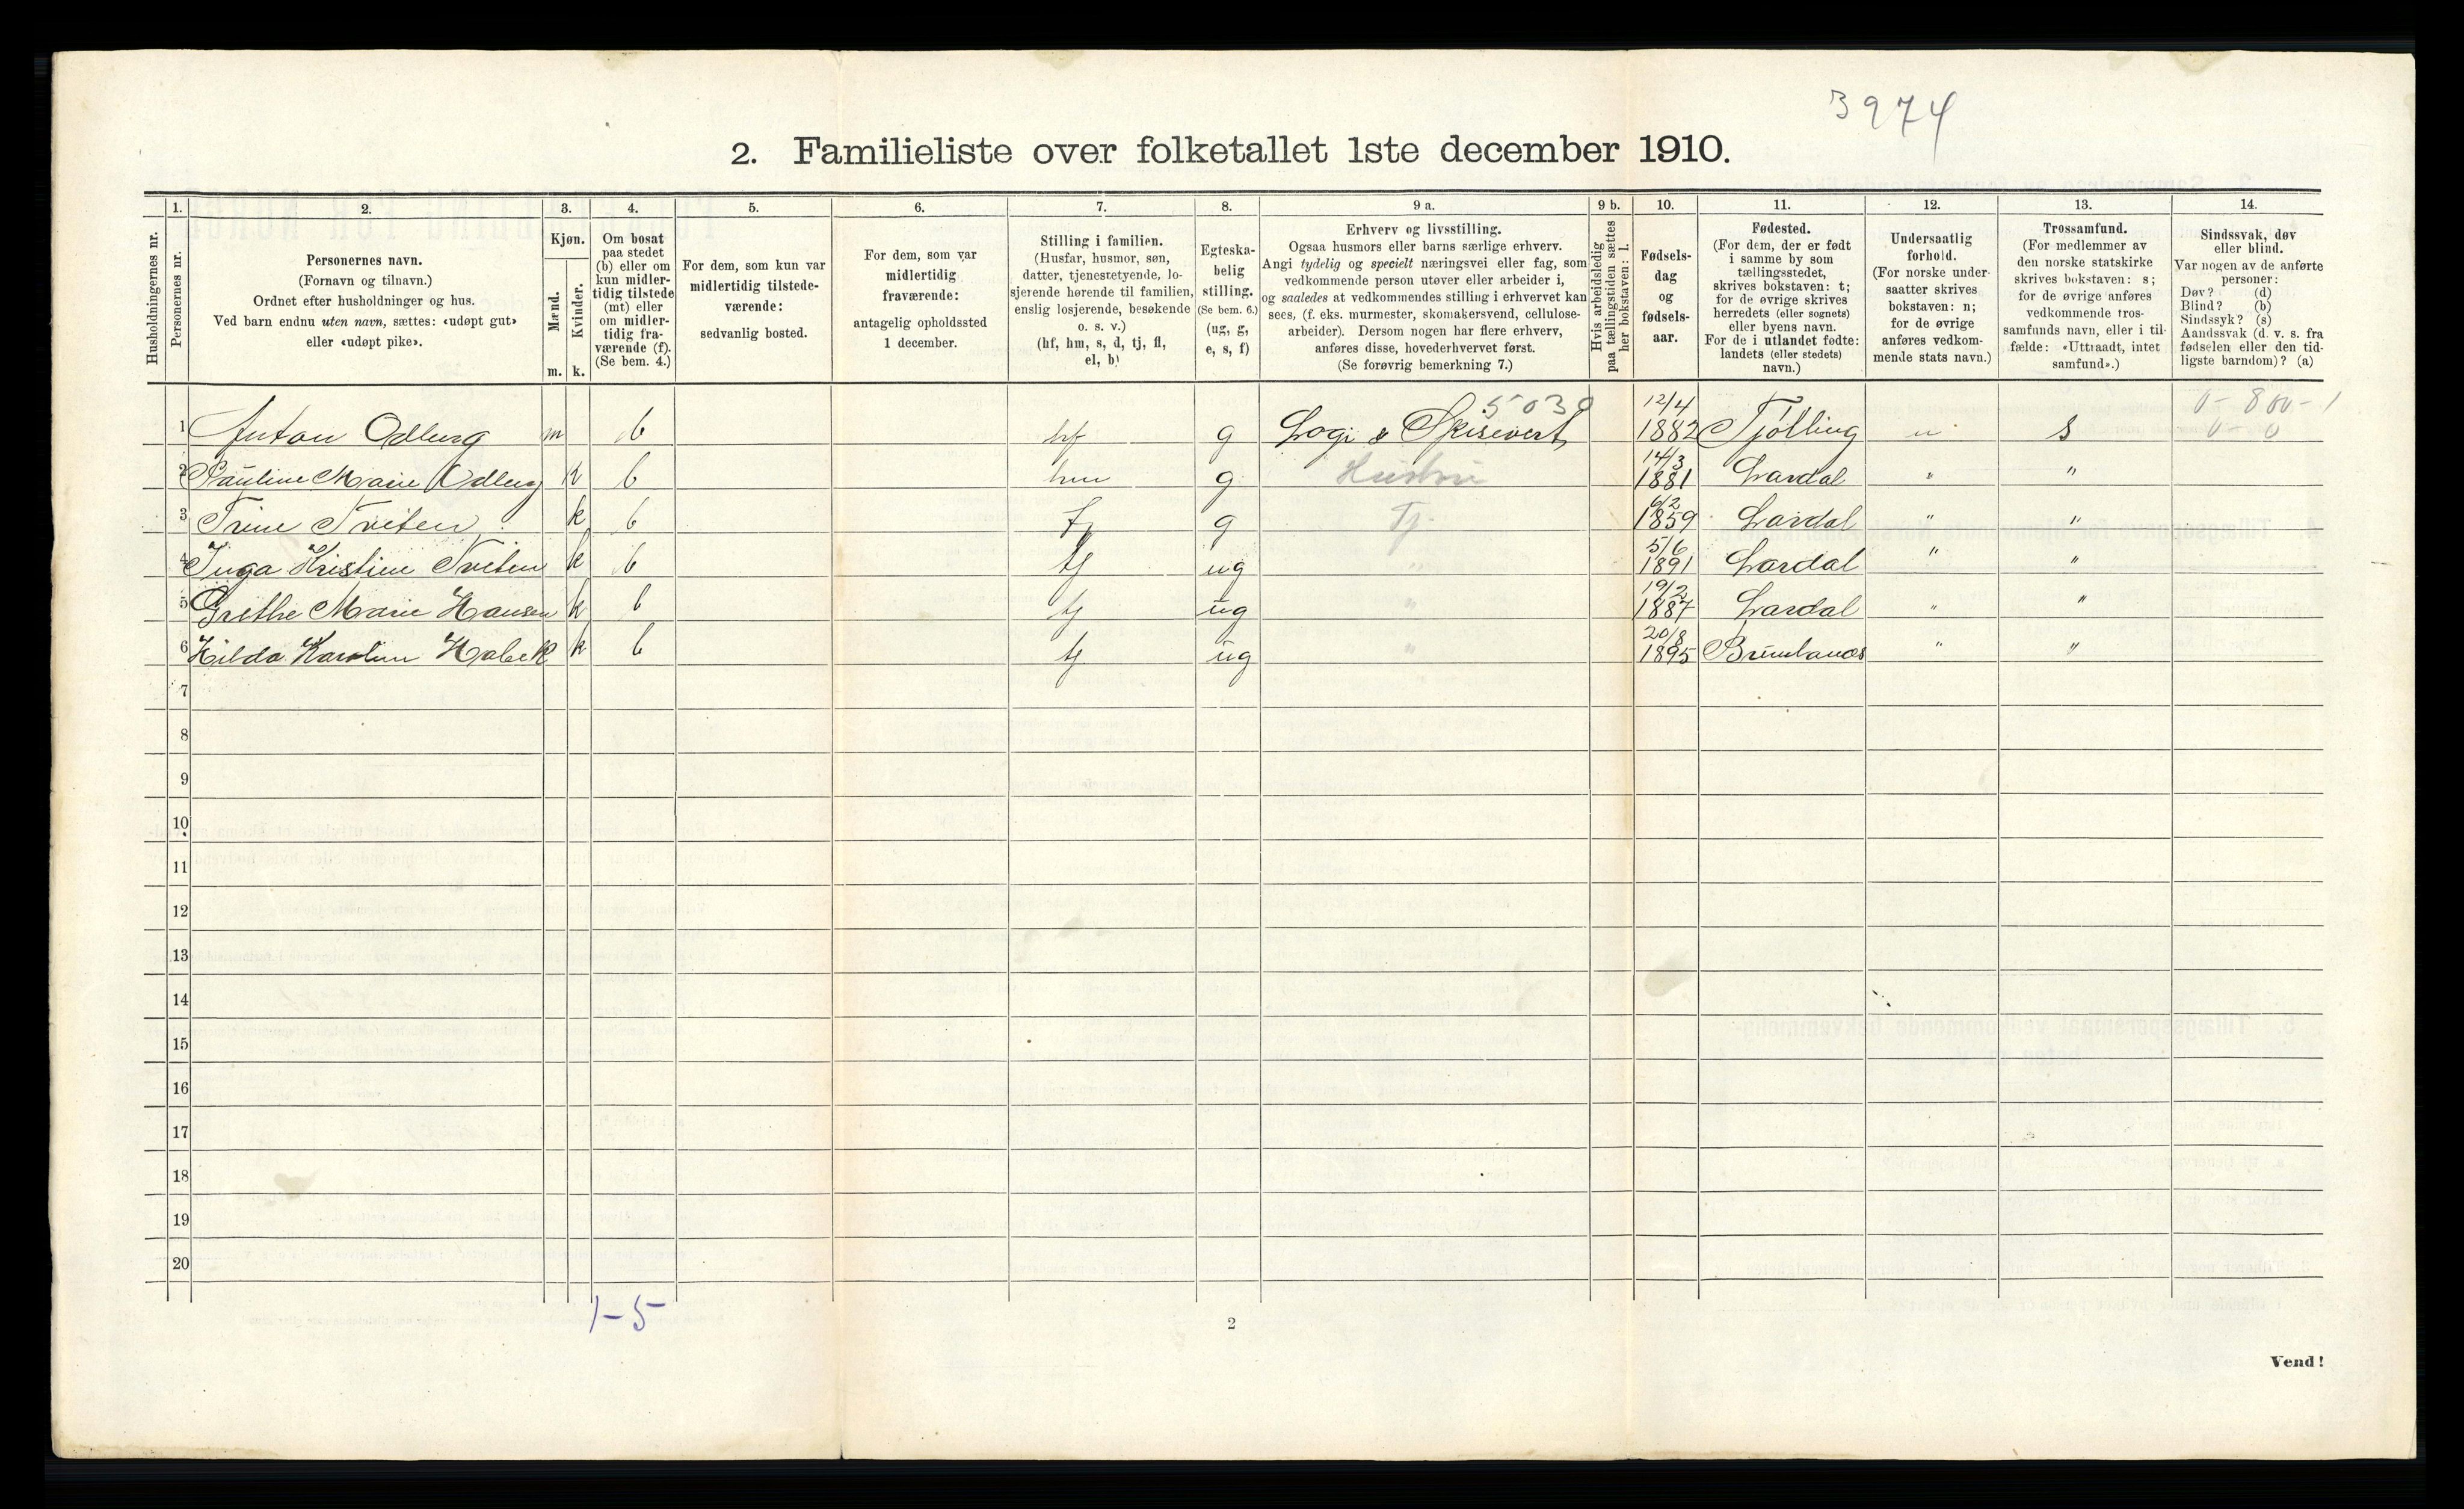 3974
2. Familieliste over folketallet 1ste december 1910.
Husholdningernes nr.
1.
Personernes nr.
2.
Personernes navn.
(Fornavn og tilnavn.)
Ordnet efter husholdninger og hus.
Ved barn endnu uten navn, sættes: «udøpt gut»
eller «udøpt pike».
3.
Kjøn.
Mænd.
Kvinder.
m. k.
4.
Om bosat
paa stedet
(b) eller om
kun midler-
tidig tilstede
(mt) eller
om midler-
tidig fra-
værende (f).
(Se bem. 4.)
5.
For dem, som kun var
midlertidig tilstede-
værende:
sedvanlig bosted.
6.
For dem, som var
midlertidig
fraværende:
antagelig opholdssted
1 december.
7.
Stilling i familien.
(Husfar, husmor, søn,
datter, tjenestetyende, lo-
sjerende hørende til familien,
enslig losjerende, besøkende
o. s. v.)
(hf, hm, s, d, tj, fl,
el, b)
8.
Egteska-
belig
stilling.
(Se bem. 6.)
(ug, g,
e, s, f)
9 a.
Erhverv og livsstilling.
Ogsaa husmors eller barns særlige erhverv.
Angi tydelig og specielt næringsvei eller fag, som
vedkommende person utøver eller arbeider i,
og saaledes at vedkommendes stilling i erhvervet kan
sees, (f. eks. murmester, skomakersvend, cellulose-
arbeider). Dersom nogen har flere erhverv,
anføres disse, hovederhvervet først.
(Se forøvrig bemerkning 7.)
9 b.
Hvis arbeidsledig
paa tællingstiden sættes
her bokstaven: l.
10.
Fødsels-
dag
og
fødsels-
aar.
11.
Fødested.
(For dem, der er født
i samme by som
tællingsstedet,
skrives bokstaven: t;
for de øvrige skrives
herredets (eller sognets)
eller byens navn.
For de i utlandet fødte:
landets (eller stedets)
navn.)
12.
Undersaatlig
forhold.
(For norske under-
saatter skrives
bokstaven: n;
for de øvrige
anføres vedkom-
mende stats navn.)
13.
Trossamfund.
(For medlemmer av
den norske statskirke
skrives bokstaven: s;
for de øvrige anføres
vedkommende tros-
samfunds navn, eller i til-
fælde: «Uttraadt, intet
samfund».)
14.
Sindssvak, døv
eller blind.
Var nogen av de anførte
personer:
Døv? (d)
Blind? (b)
Sindssyk? (s)
Aandssvak (d. v. s. fra
fødselen eller den tid-
ligste barndom)? (a)
5030 12/4 0-800-1
1 Anton Odberg m b hf g Logi & Spisevert 1882 Tjølling n s 0-0
2 Pauline Marie Odberg k b hm g Hustru 14/3 1881 Lardal " "
3 Trine Tveten k b tj g Tj. 6/2 1859 Lardal " "
4 Inga Kristine Tveten k b tj ug " 5/6 1891 Lardal " "
5 Grethe Marie Hansen k b tj ug " 19/2 1887 Lardal " "
6 Hilda Karoline Holbek k b tj ug " 20/8 1895 Brunlanæs " "
7
8
9
10
11
12
13
14
15
16
17
18
19
20
1-5
2
Vend!